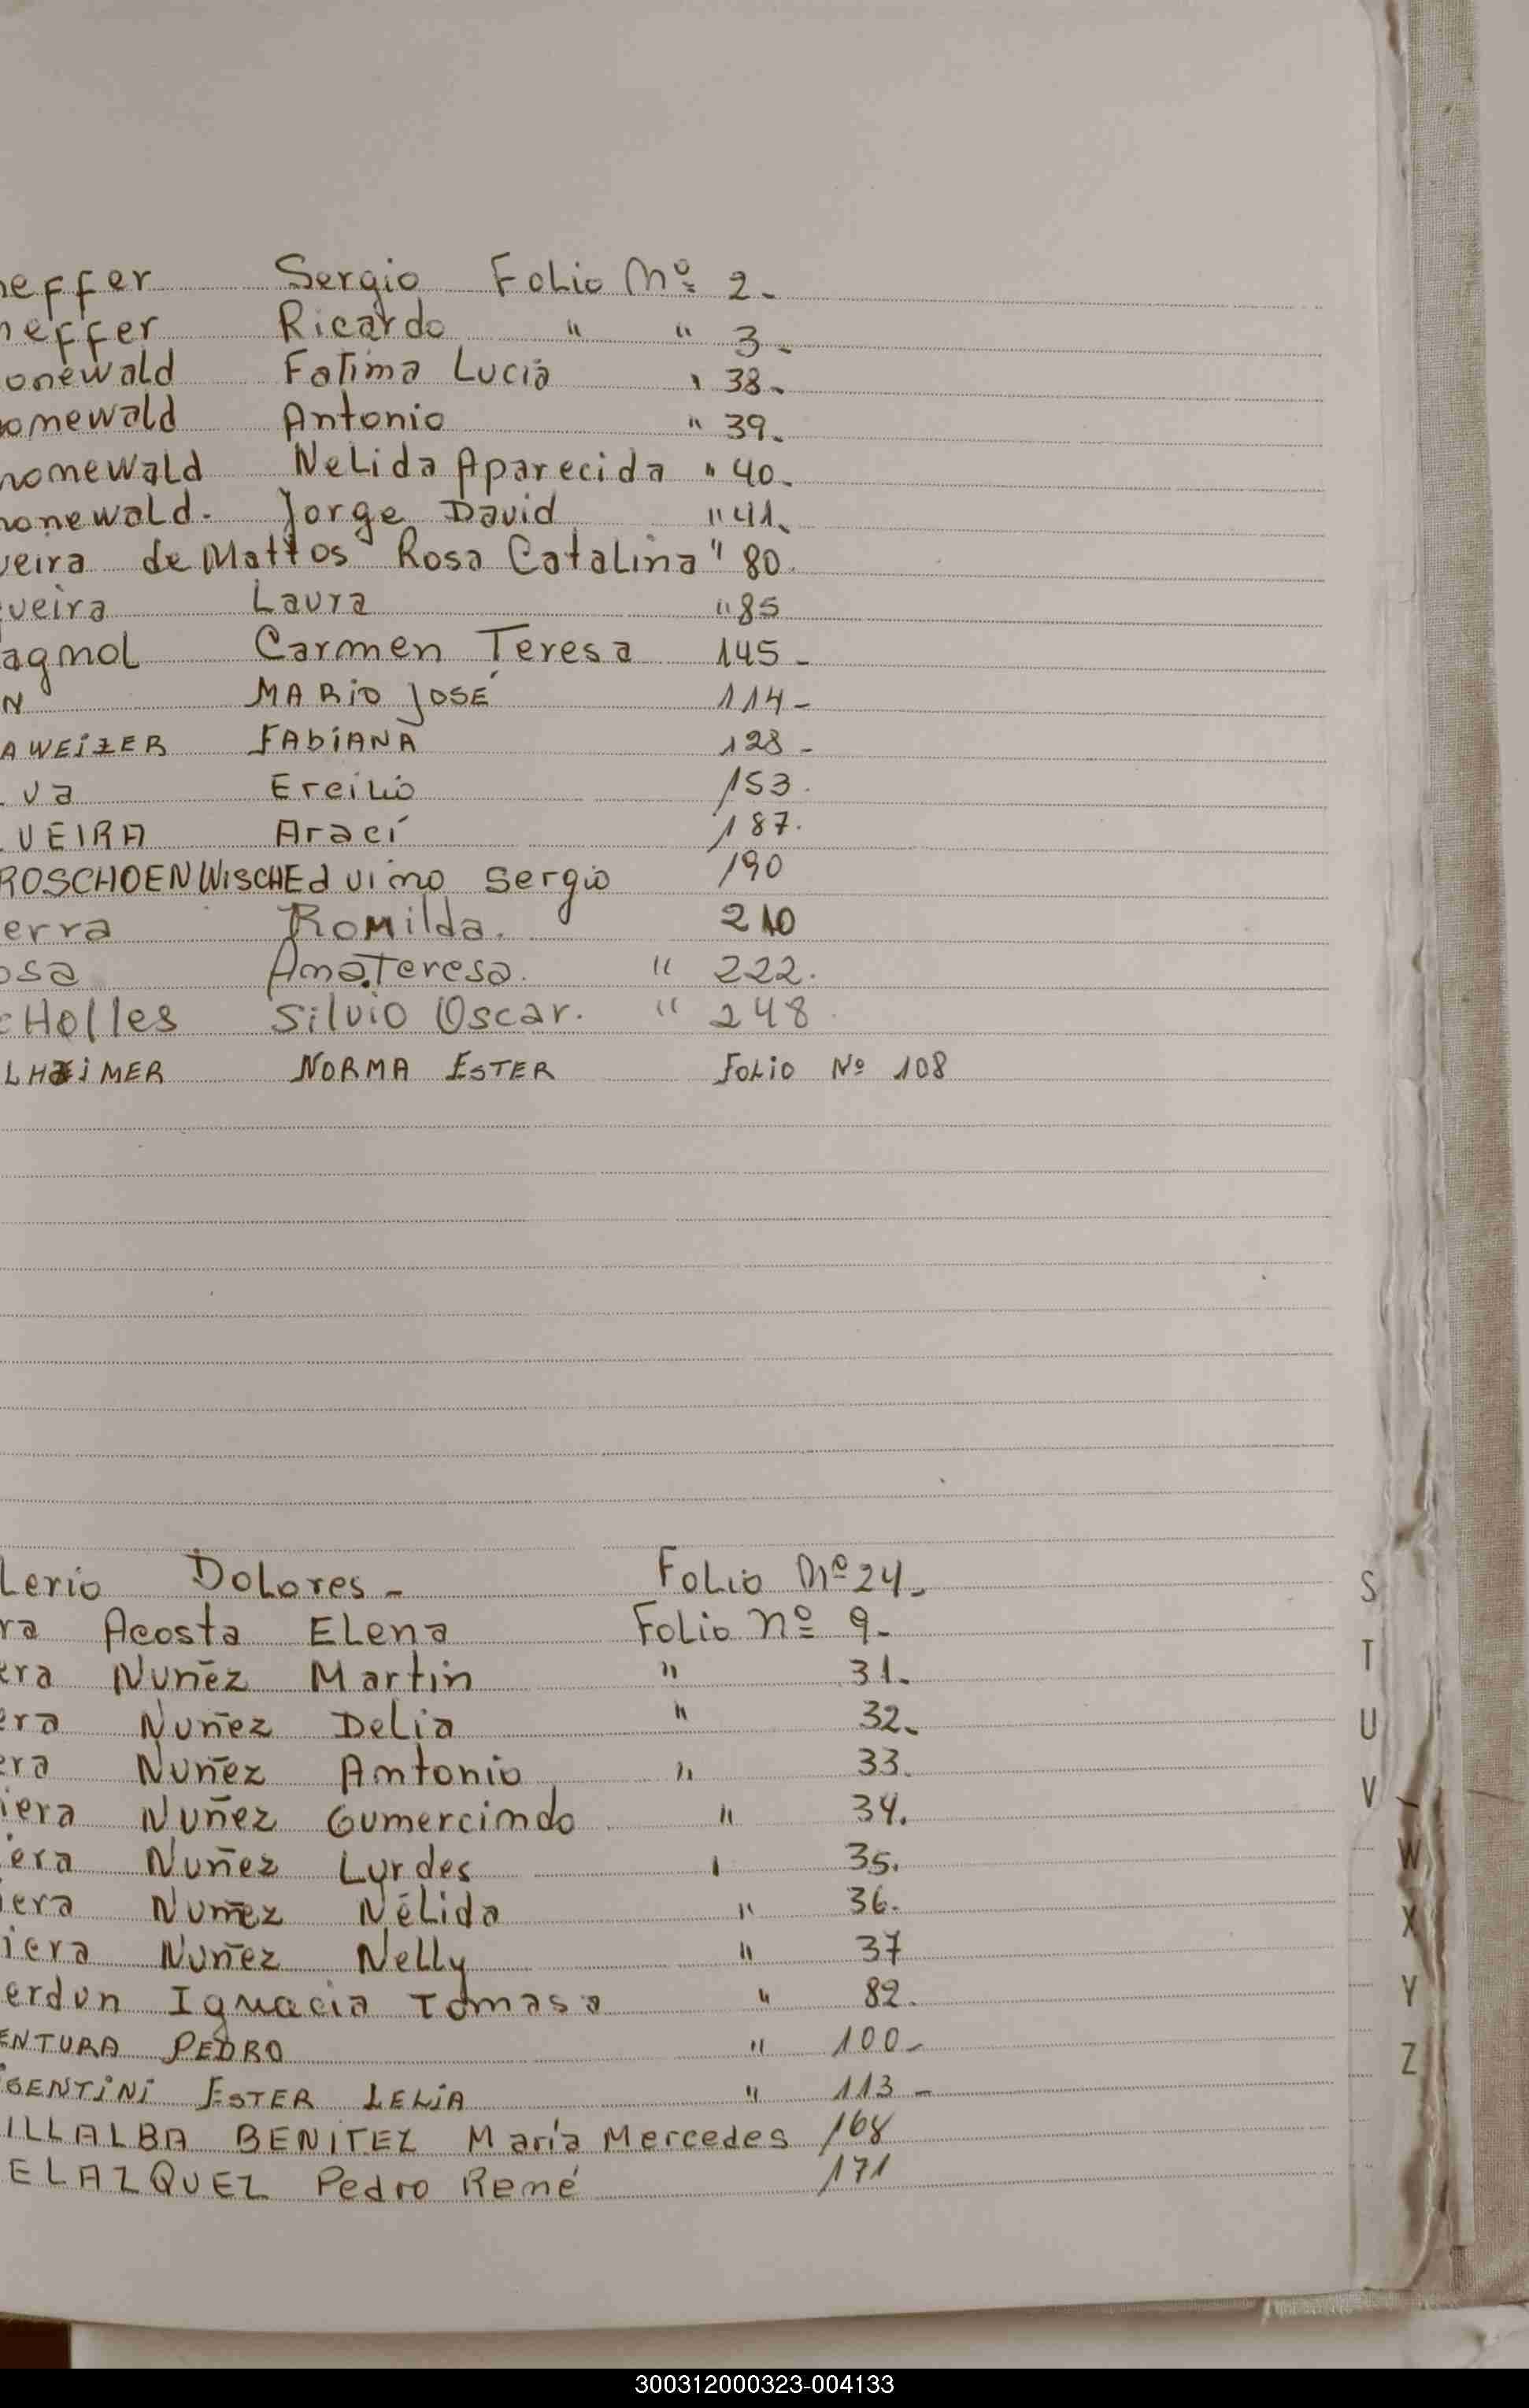 heffer Sergio Folio Nº 2.
heffer Ricardo " " 3.
onewald Fatima Lucia " 38.
onewald Antonio " 39.
honewald Nelida Aparecida " 40.
honewald. Jorge David " 41.
veira de Mattos Rosa Catalina " 80.
veira Laura " 85
agnol Carmen Teresa 145.
N MARIO JOSÉ 114-
AWEIZER FABIANA 128-
va Ercilio 153.
VEIRA Araci 187.
ROSCHOENWISCH Eduino Sergio 190
erra Romilda. 210
osa Ana Teresa. " 222.
cHolles Silvio Oscar. " 248.
LHEIMER NORMA ESTER Folio Nº 108
Lerio Dolores - Folio Nº 24.
ra Acosta Elena Folio nº 9.
era Nuñez Martin " 31.
era Nuñez Delia " 32.
era Nuñez Antonio " 33.
iera Nuñez Gumercindo " 34.
iera Nuñez Lurdes " 35.
iera Nuñez Nélida " 36.
iera Nuñez Nelly " 37
erdun Ignacia Tomasa " 82.
ENTURA PEDRO " 100-
SENTINI ESTER LELIA " 113-
ILLALBA BENITEZ María Mercedes 168
ELAZQUEZ Pedro René 171
S
T
U
V
W
X
Y
Z
300312000323-004133